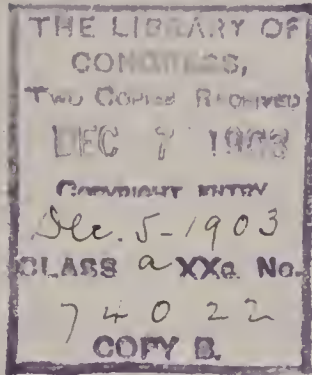 THE LIBRARY OF
CONGRESS,
TWO COPIES RECEIVED
DEC 7 1903
COPYRIGHT ENTRY
Dec. 5-1903
CLASS a XXc. No.
74022
COPY B.